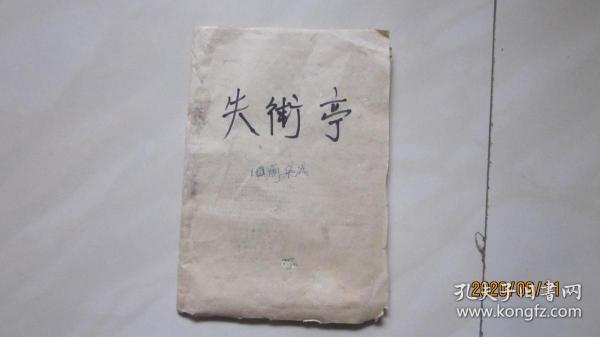 失街亭
2020/05/11
孔夫子旧书网
www.kongfz.com